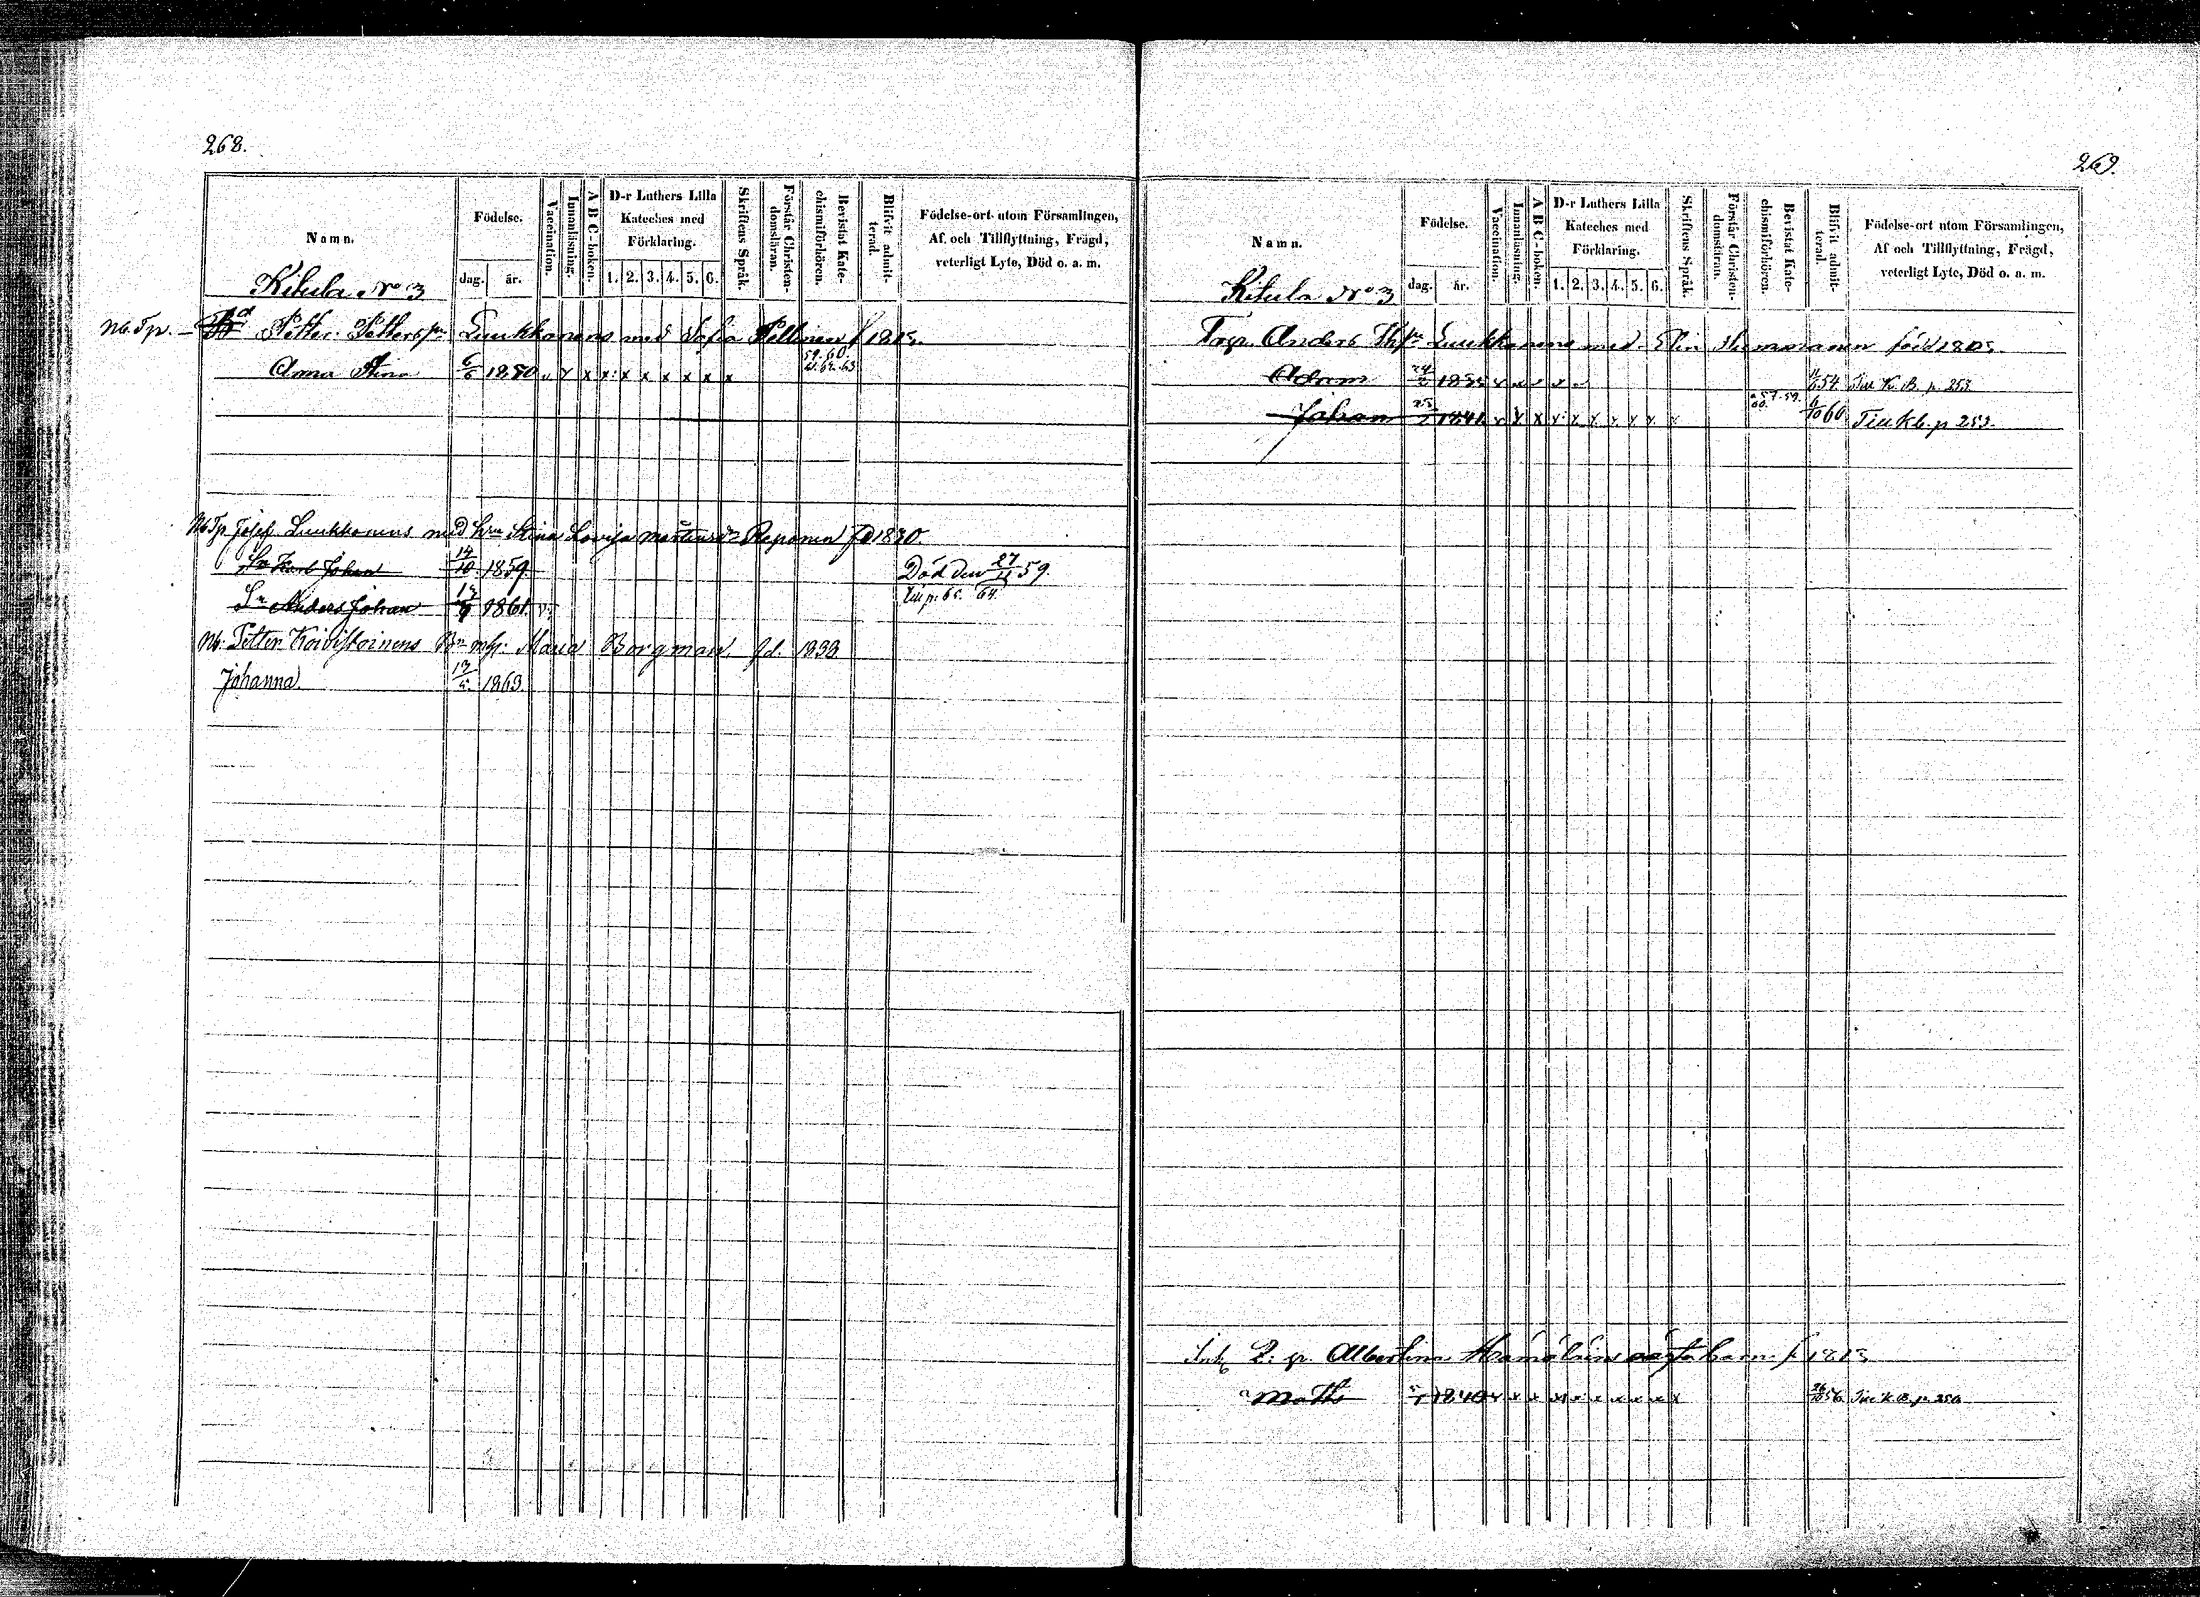 268.
Namn.
Födelse.
dag. år.
Vaccination.
Innanläsning.
A B C-boken.
D-r Luthers Lilla Kateches med Förklaring.
1. 2. 3. 4. 5. 6.
Skriftens Språk.
Förstår Christendomsläran.
Bevistat Katechismiförhören.
Blifvit admitterad.
Födelse-ort utom Församlingen, Af. och Tillflyttning, Frägd, veterligt Lyte, Död o. a. m.
Kitula No 3
Petter Petterspn Luukkonens med Sofia Pellinen f 1813
Anna Stina 6/6 1850 x x x x x x x x x 59. 60. 61. 62. 63
Josef Luukkonens med hru Stina Lovisa Mårtensdr Reponen fd 1830
Sn Karl Johan 14/10 1859 Död den 27/11 59.
Sn Anders Johan 1861 Till p. 65. 64.
Petter Koivistoinens Maria Borgman fd. 1838
Johanna 1863
269.
Namn.
Födelse.
dag. år.
Vaccination.
Innanläsning.
A B C-boken.
D-r Luthers Lilla Kateches med Förklaring.
1. 2. 3. 4. 5. 6.
Skriftens Språk.
Förstår Christendomsläran.
Bevistat Katechismiförhören.
Blifvit admitterad.
Födelse-ort utom Församlingen, Af och Tillflyttning, Frägd, veterligt Lyte, Död o. a. m.
Kitula No 3
Anders Luukkonens med Elin född 1805
Adam 54 Till K. B. p. 253
Johan 1841 57-59. 60. 60 Till Kb. p 253.
Albertina barn f 1813
Matts 1840 x x x x x x x x 56 Till K. B. p. 250